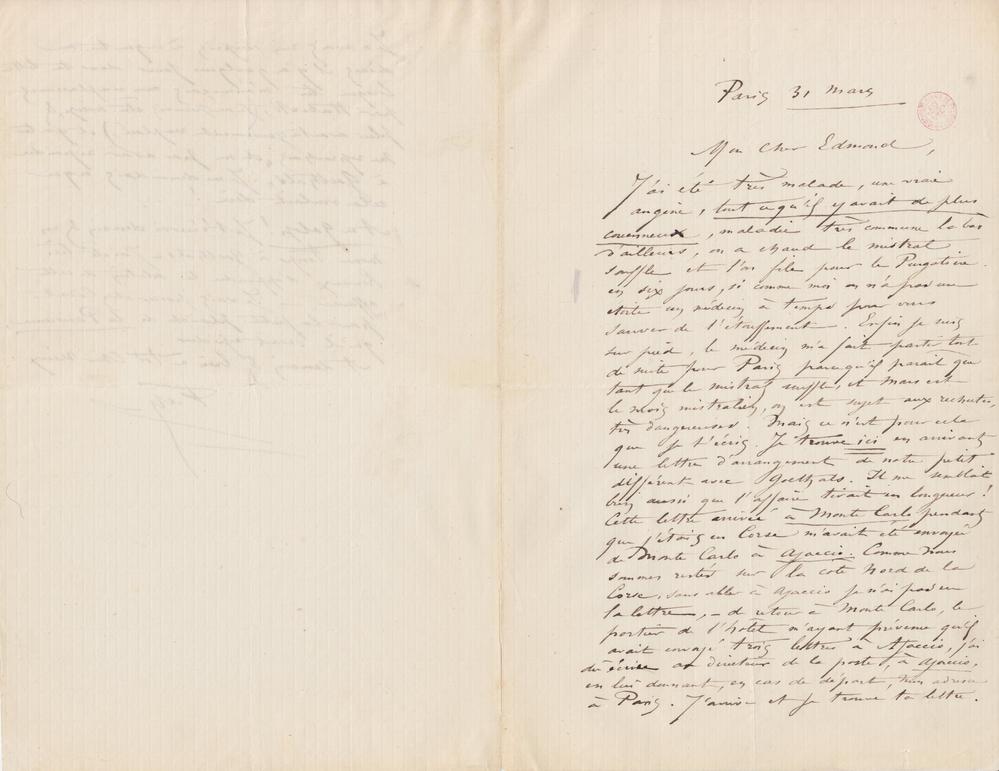 Paris 31 mars
Mon Cher Edmond,
J'ai été très malade, une vraie
angine, tout ce qu'il y avait de plus
couenneux, maladie très commune là bas
d'ailleurs, on a chaud le mistral
souffle et l'on file pour le Purgatoire
en six jours, si comme moi on n'a pas un
un médecin à temps pour vous
sauver de l'étouffement. Enfin je suis
sur pied, le médecin m'a fait partir tout
de suite pour Paris parcequ'il parait que
tant que le mistral souffle, et Mars est
le mois mistralien, on est sujet aux rechutes,
très dangereuses. Mais ce n'est pour cela
que je t'écris. Je trouve ici en arrivant
une lettre d'arrangement de notre petit
différent avec Goethals. Il me semblait
bien aussi que l'affaire tirait en longueur!
Cette lettre arrivée à Monte Carlo pendant
que j'étais en Corse m'avait été envoyée
de Monte Carlo à Ajaccio. Comme nous
sommes restés sur la côte Nord de la
Corse, sans aller à Ajaccio je n'ai pas eu
la lettre, – de retour à Monte Carlo, le
portier de l'hotel m'ayant prévenu qu'il
avait envoyé trois lettres à Ajaccio, j'ai
dû écrire au directeur de la poste, à Ajaccio,
en lui donnant, en cas de départ, mon adresse
à Paris. J'arrive et je trouve ta lettre.